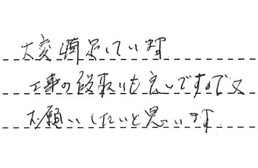 大変満足しています
工事の段取りも良いですので又
お願いしたいと思います。